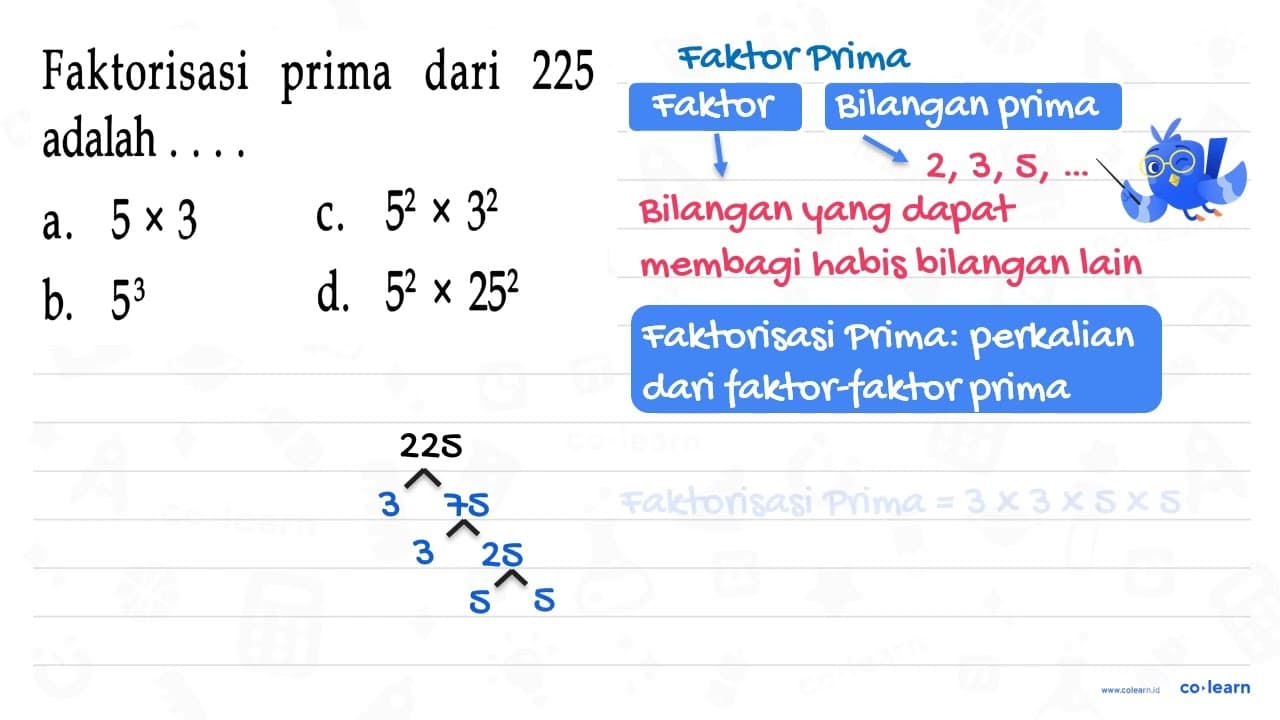 Faktorisasi prima dari 225
adalah . . . .
a. 5 × 3
c. 5² × 3²
b. 5³
d. 5² × 25²
Faktor Prima
Faktor
Bilangan prima
2, 3, 5, ...
Bilangan yang dapat
membagi habis bilangan lain
Faktorisasi Prima: perkalian
dari faktor-faktor prima
225
3 75
3 25
5 5
Faktorisasi Prima = 3 x 3 x 5 x 5
www.colearn.id
co·learn